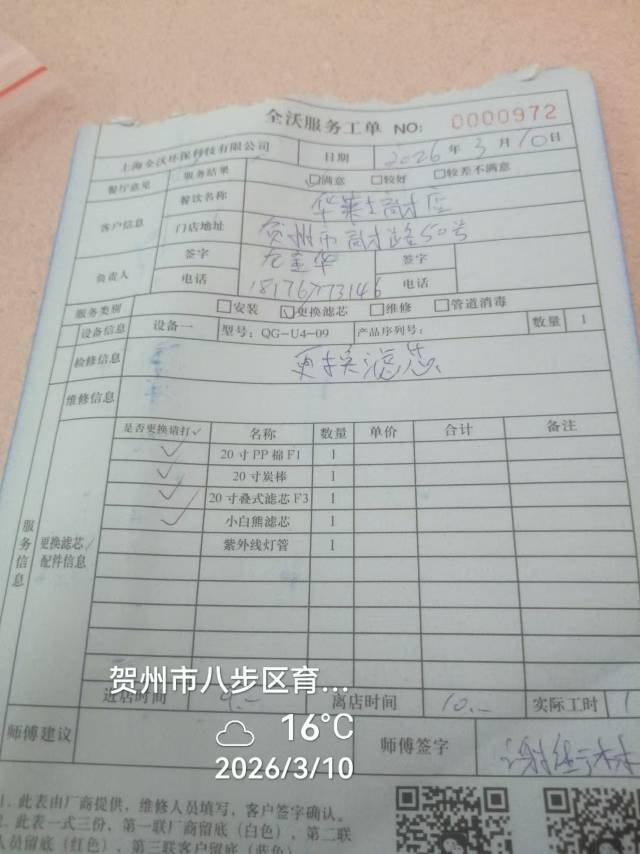 全沃服务工单 NO: 0000972
上海全沃环保科技有限公司 日期 2026年3月10日
餐厅意见 服务结果 ☑满意 □较好 □较差不满意
客户信息 餐饮名称
门店地址 贺州市 路50号
负责人 签字 签字
电话 电话
服务类别 □安装 ☑更换滤芯 □维修 □管道消毒
设备信息 设备一 型号: QG-U4-09 产品序列号: 数量 1
检修信息 更换滤芯
维修信息
服务信息 更换滤芯/配件信息
是否更换请打✓ 名称 数量 单价 合计 备注
✓ 20寸PP棉F1 1
✓ 20寸炭棒 1
✓ 20寸叠式滤芯F3 1
✓ 小白熊滤芯 1
紫外线灯管 1
进店时间 离店时间 10.- 实际工时 1
师傅建议 师傅签字
1. 此表由厂商提供，维修人员填写，客户签字确认。
2. 此表一式三份、第一联厂商留底（白色）、第二联
人员留底（红色）、第三联客户留底（蓝色）
贺州市八步区育...
16°C
2026/3/10